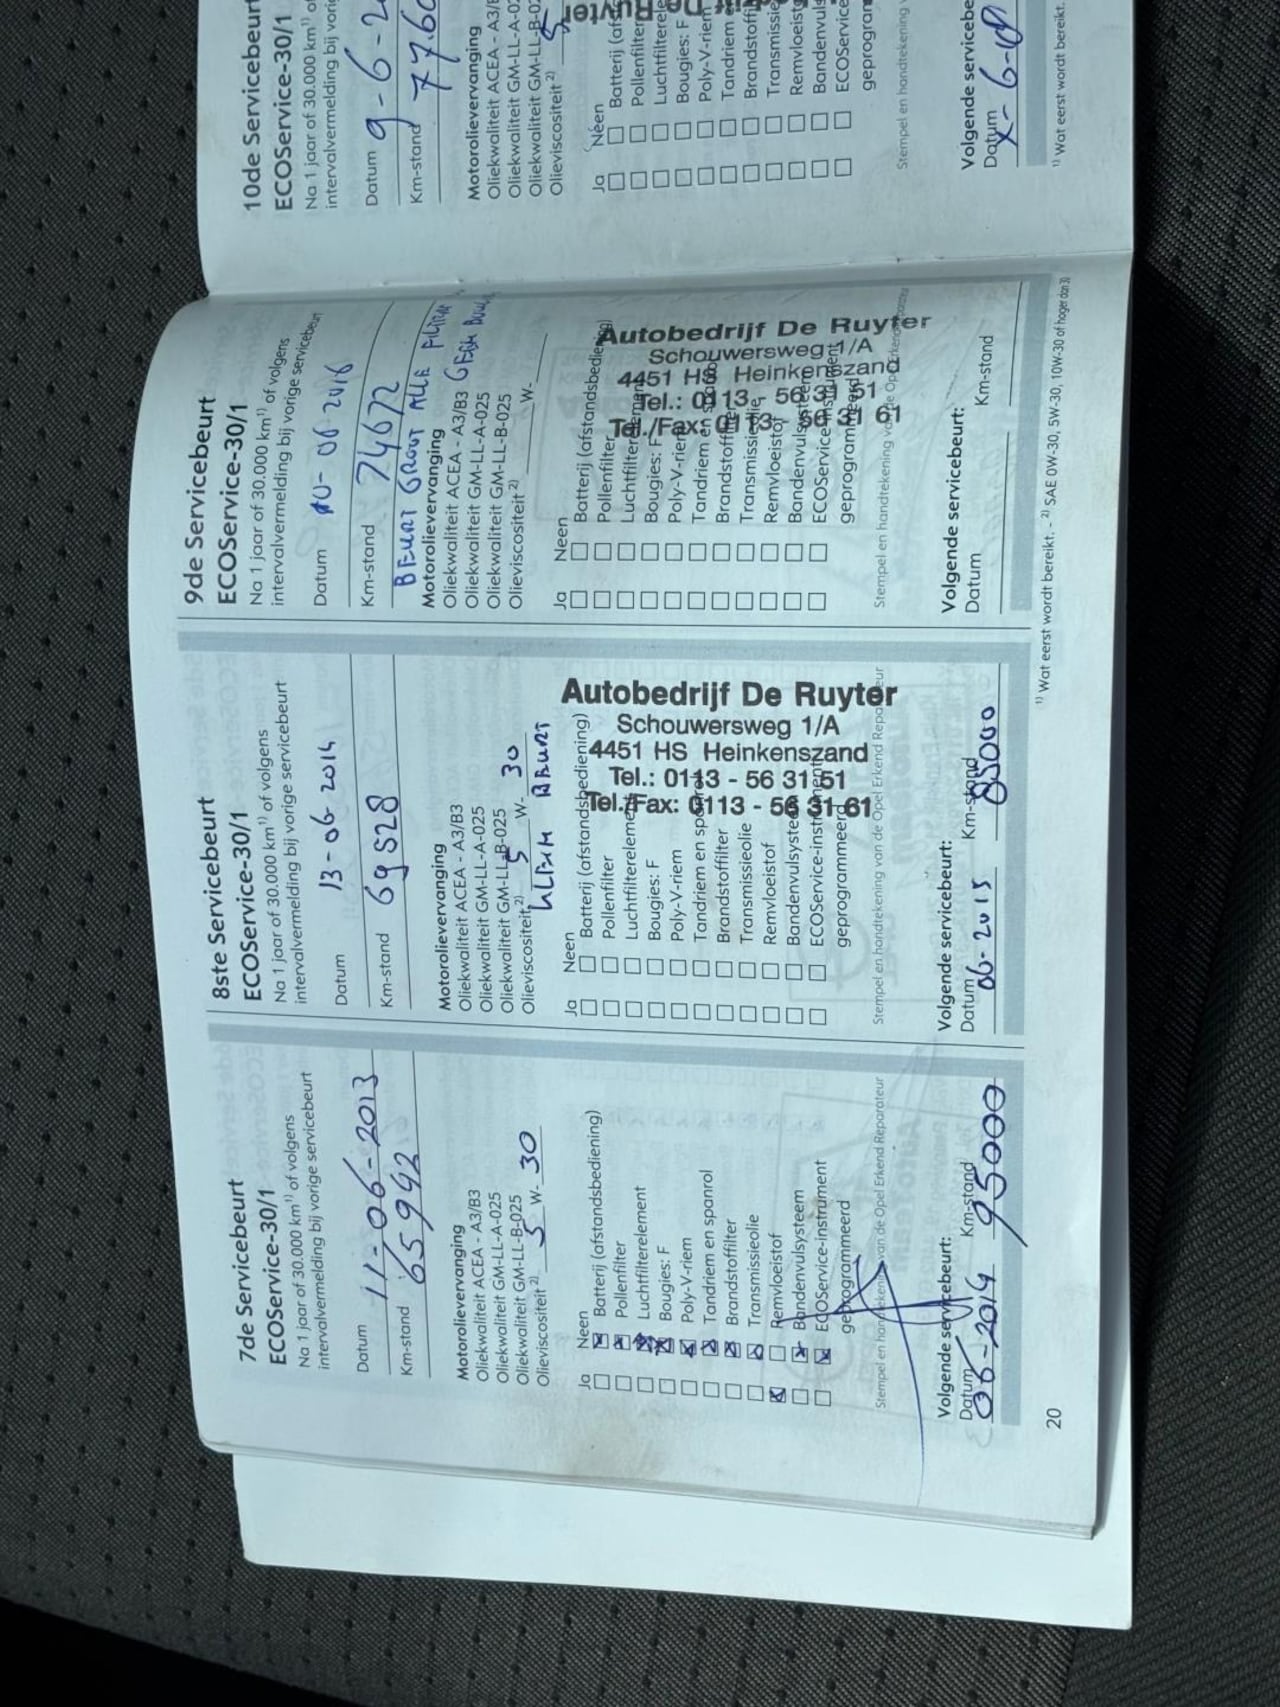 7de Servicebeurt
ECOService-30/1
Na 1 jaar of 30.000 km¹⁾ of volgens
intervalvermelding bij vorige servicebeurt
Datum 11-06-2013
Km-stand 65992
Motorolievervanging
Oliekwaliteit ACEA - A3/B3
Oliekwaliteit GM-LL-A-025
Oliekwaliteit GM-LL-B-025
Olieviscositeit²⁾ 5 W- 30
Ja Neen
Batterij (afstandsbediening)
Pollenfilter
Luchtfilterelement
Bougies: F
Poly-V-riem
Tandriem en spanrol
Brandstoffilter
Transmissieolie
Remvloeistof
Bandenvulsysteem
ECOService-instrument
geprogrammeerd
Stempel en handtekening van de Opel Erkend Reparateur
Volgende servicebeurt:
Datum Km-stand
06-2014 95000
20
8ste Servicebeurt
ECOService-30/1
Na 1 jaar of 30.000 km¹⁾ of volgens
intervalvermelding bij vorige servicebeurt
Datum 13-06-2014
Km-stand 69528
Motorolievervanging
Oliekwaliteit ACEA - A3/B3
Oliekwaliteit GM-LL-A-025
Oliekwaliteit GM-LL-B-025
Olieviscositeit²⁾ 5 W- 30
KLEIN BEURT
Ja Neen
Batterij (afstandsbediening)
Pollenfilter
Luchtfilterelement
Bougies: F
Poly-V-riem
Tandriem en spanrol
Brandstoffilter
Transmissieolie
Remvloeistof
Bandenvulsysteem
ECOService-instrument
geprogrammeerd
Autobedrijf De Ruyter
Schouwersweg 1/A
4451 HS Heinkenszand
Tel.: 0113 - 56 31 51
Tel./Fax: 0113 - 56 31 61
Stempel en handtekening van de Opel Erkend Reparateur
Volgende servicebeurt:
Datum Km-stand
06-2015 85000
9de Servicebeurt
ECOService-30/1
Na 1 jaar of 30.000 km¹⁾ of volgens
intervalvermelding bij vorige servicebeurt
Datum 10-06-2016
Km-stand 74672
BEURT GROOT ALLE FILTERS
Motorolievervanging
Oliekwaliteit ACEA - A3/B3
Oliekwaliteit GM-LL-A-025
Oliekwaliteit GM-LL-B-025
Olieviscositeit²⁾ W-
Ja Neen
Batterij (afstandsbediening)
Pollenfilter
Luchtfilterelement
Bougies: F
Poly-V-riem
Tandriem en
Brandstoffilter
Transmissieolie
Remvloeistof
Bandenvulsysteem
ECOService-instrument
geprogrammeerd
Autobedrijf De Ruyter
Schouwersweg 1/A
4451 HS Heinkenszand
Tel.: 0113 - 56 31 51
Tel./Fax: 0113 - 56 31 61
Stempel en handtekening van de Opel Erkend Reparateur
Volgende servicebeurt:
Datum Km-stand
¹⁾ Wat eerst wordt bereikt. - ²⁾ SAE 0W-30, 5W-30, 10W-30 of hoger dan 30
10de Servicebeurt
ECOService-30/1
Na 1 jaar of 30.000 km¹⁾ of
intervalvermelding bij vori
Datum 9-6-2
Km-stand 7760
Motorolievervanging
Oliekwaliteit ACEA - A3/B
Oliekwaliteit GM-LL-A-02
Oliekwaliteit GM-LL-B-02
Olieviscositeit²⁾ 5
Ja Neen
Batterij (afs
Pollenfilter
Luchtfiltere
Bougies: F
Poly-V-riem
Tandriem
Brandstoffi
Transmissie
Remvloeist
Bandenvuls
ECOService
geprogram
De Ruyter
Stempel en handtekening v
Volgende servicebe
Datum
¹⁾ Wat eerst wordt bereikt.